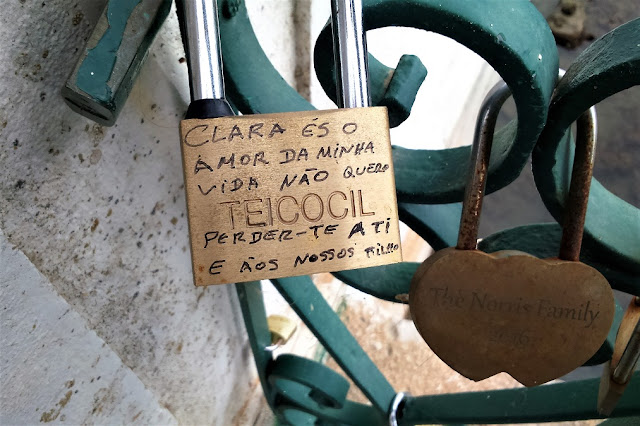 CLARA ÉS O
AMOR DA MINHA
VIDA NÃO QUERO
TEICOCIL
PERDER-TE A TI
E ÃOS NOSSOS FILHO
The Norris Family